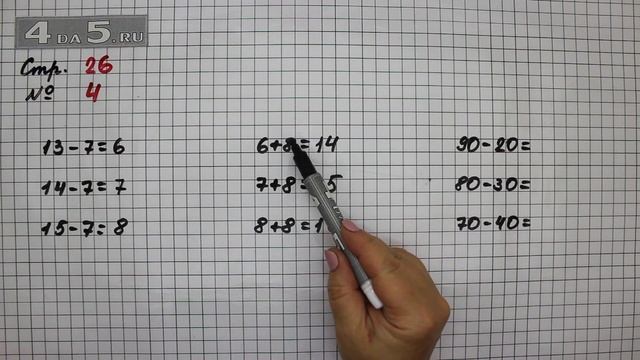 4 DA 5.RU
Стр. 26
№ 4
13-7=6
14-7=7
15-7=8
6+8=14
7+8= 5
8+8=1
90-20=
80-30=
70-40=